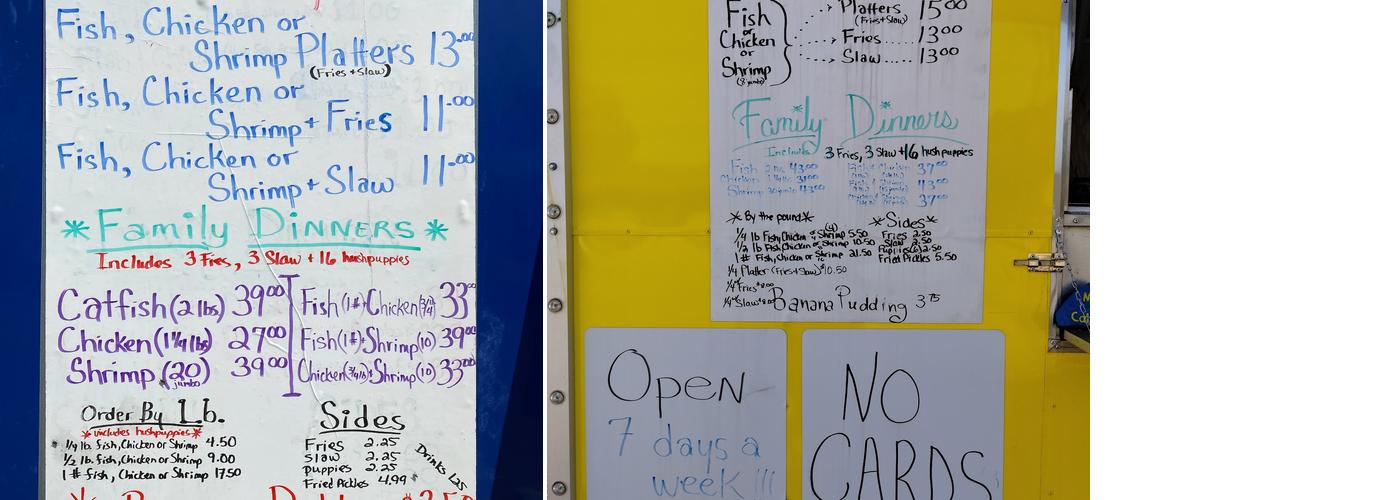 Fish, Chicken or
Shrimp Platters 13.00
(Fries + Slaw)
Fish, Chicken or
Shrimp + Fries 11.00
Fish, Chicken or
Shrimp + Slaw 11.00
* Family Dinners *
Includes 3 Fries, 3 Slaw + 16 hushpuppies
Catfish (2 lbs) 39.00
Chicken (1 1/4 lbs) 27.00
Shrimp (20) 39.00
jumbo
Fish (1#) + Chicken (3/4) 33.00
Fish (1#) + Shrimp (10) 39.00
Chicken (3/4 lb) + Shrimp (10) 33.00
Order By Lb.
* includes hushpuppies *
1/4 lb. fish, Chicken or Shrimp 4.50
1/2 lb. fish, Chicken or Shrimp 9.00
1 # fish, Chicken or Shrimp 17.50
Sides
Fries 2.25
Slaw 2.25
puppies 2.25
Fried Pickles 4.99
Drinks 1.25
Fish
or
Chicken
or
Shrimp
Platters 15.00
(Fries + Slaw)
Fries...... 13.00
Slaw..... 13.00
Family Dinners
Includes 3 Fries, 3 Slaw + 16 hushpuppies
Fish 43.00
Chicken 31.00
Shrimp 43.00
37.00
43.00
37.00
* By the pound *
1/4 lb Fish, Chicken or Shrimp (4) 5.50
1/2 lb Fish, Chicken or Shrimp 10.50
1 # Fish, Chicken or Shrimp 21.50
1/4 Platter (Fries + Slaw) $10.50
1/4 + Fries $8.00
1/4 + Slaw $8.00
* Sides *
Fries 2.50
Slaw 2.50
Puppies (6) 2.50
Fried Pickles 5.50
Banana Pudding 3.75
Open
7 days a
week !!!
NO
CARDS